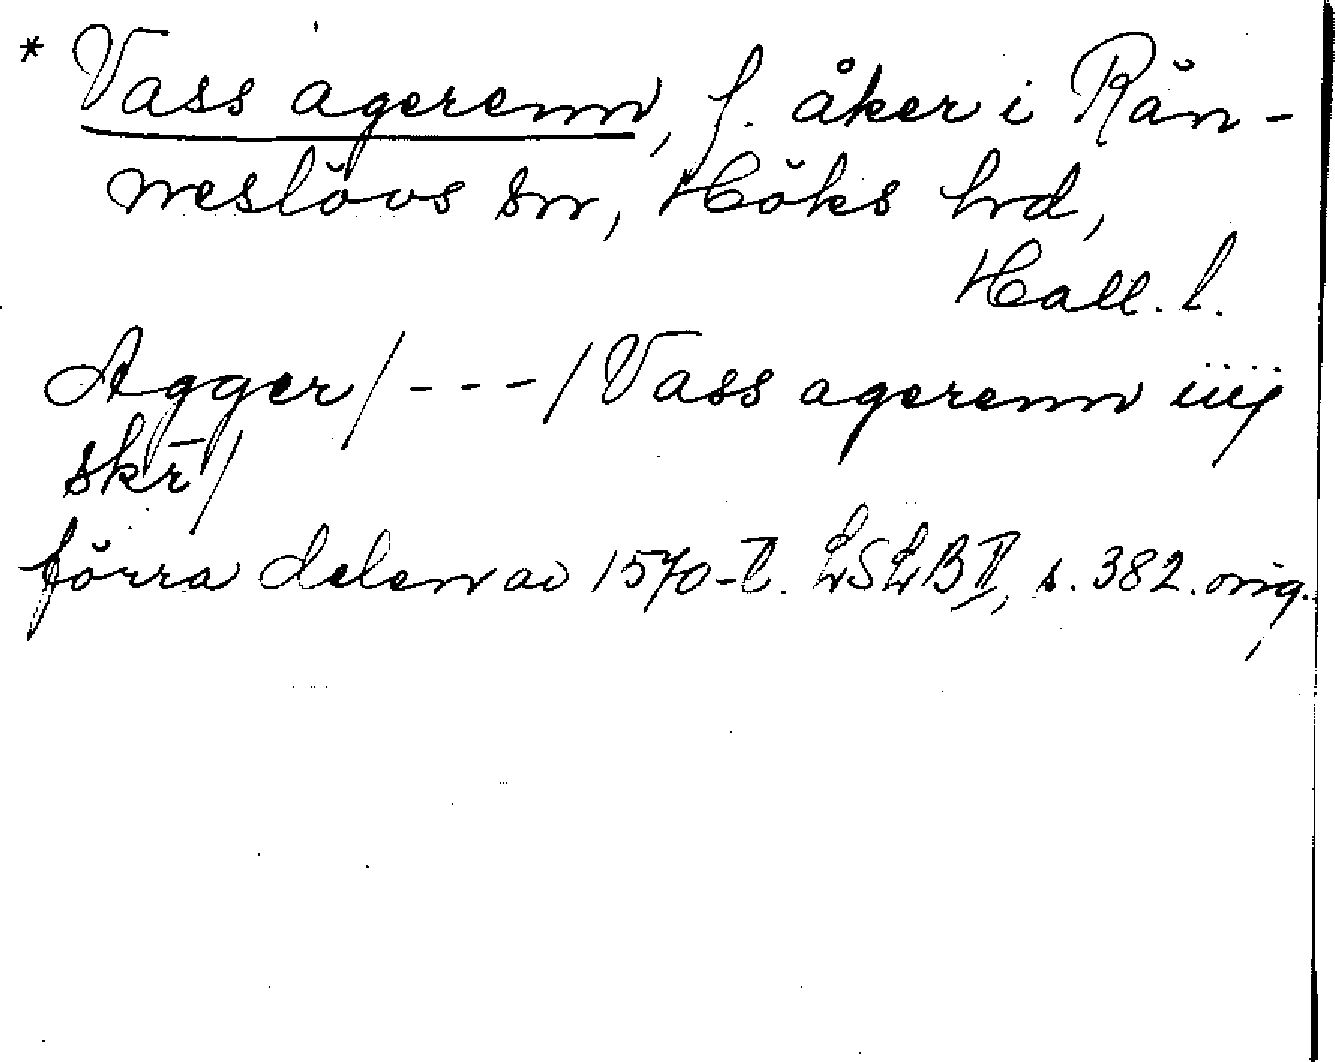 * Vass agerenn, f. åker i Rän-
neslövs sn, Höks hrd,
Hall. l.
Agger/---/Vass agerenn iiij
skr̄/
förra delen av 1570-t. LSLB II, s. 382. orig.